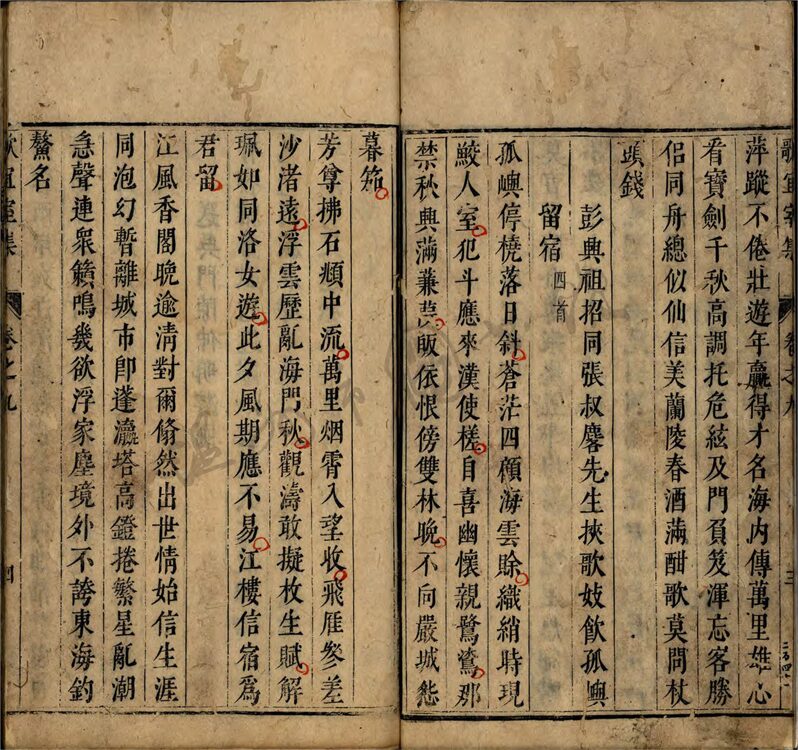 歌宜室集 卷之九 三
萍蹤不倦壯遊年贏得才名海內傳萬里雄心
看寶劍千秋高調托危絃及門負笈渾忘客勝
侶同舟總似仙信美蘭陵春酒滿酣歌莫問杖
頭錢
彭興祖招同張叔麐先生挾歌妓飲孤嶼
留宿四首
孤嶼停橈落日斜蒼茫四顧海雲賒織綃時現
鮫人室犯斗應來漢使槎自喜幽懷親鷺鶿那
禁秋興滿蒹葭皈依恨傍雙林晚不向嚴城愁
暮笳
芳尊拂石頫中流萬里烟霄入望收飛雁參差
沙渚遠浮雲歷亂海門秋觀濤敢擬枚生賦解
珮如同洛女遊此夕風期應不易江樓信宿為
君留
江風香閣晚逾清對爾翛然出世情始信生涯
同泡幻暫離城市卽蓬瀛塔高鐙捲繁星亂潮
急聲連衆籟鳴幾欲浮家塵境外不誇東海釣
鰲名
歌宜室集 卷之九 四